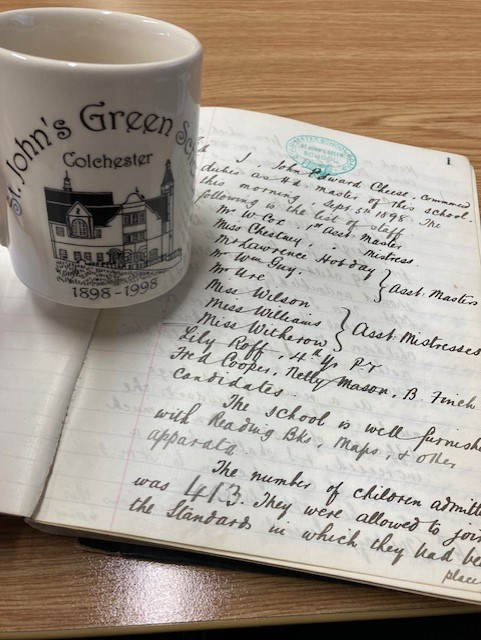 St. John's Green Sch
Colchester
1898-1998
1
I, John Edward Chese, commenced
duties as Hd. master of this school
this morning, Sept 5th 1898. The
following is the list of staff
Mr W Cox. 1st Asst. Master
Miss Chestney. " Mistress
Mr Lawrence Hobday
Mr Wm Guy.
Mr Ure
Asst. Masters
Miss Wilson
Miss Williams
Miss Witherow
Asst. Mistresses
Lily Roff, 4th Yr P.T
Fred Cooper, Nelly Mason, B. Finch
Candidates.
The school is well furnishe
with Reading Bks, Maps, & other
apparata.
The number of children admitt
was 413. They were allowed to joi
the Standards in which they had be
place